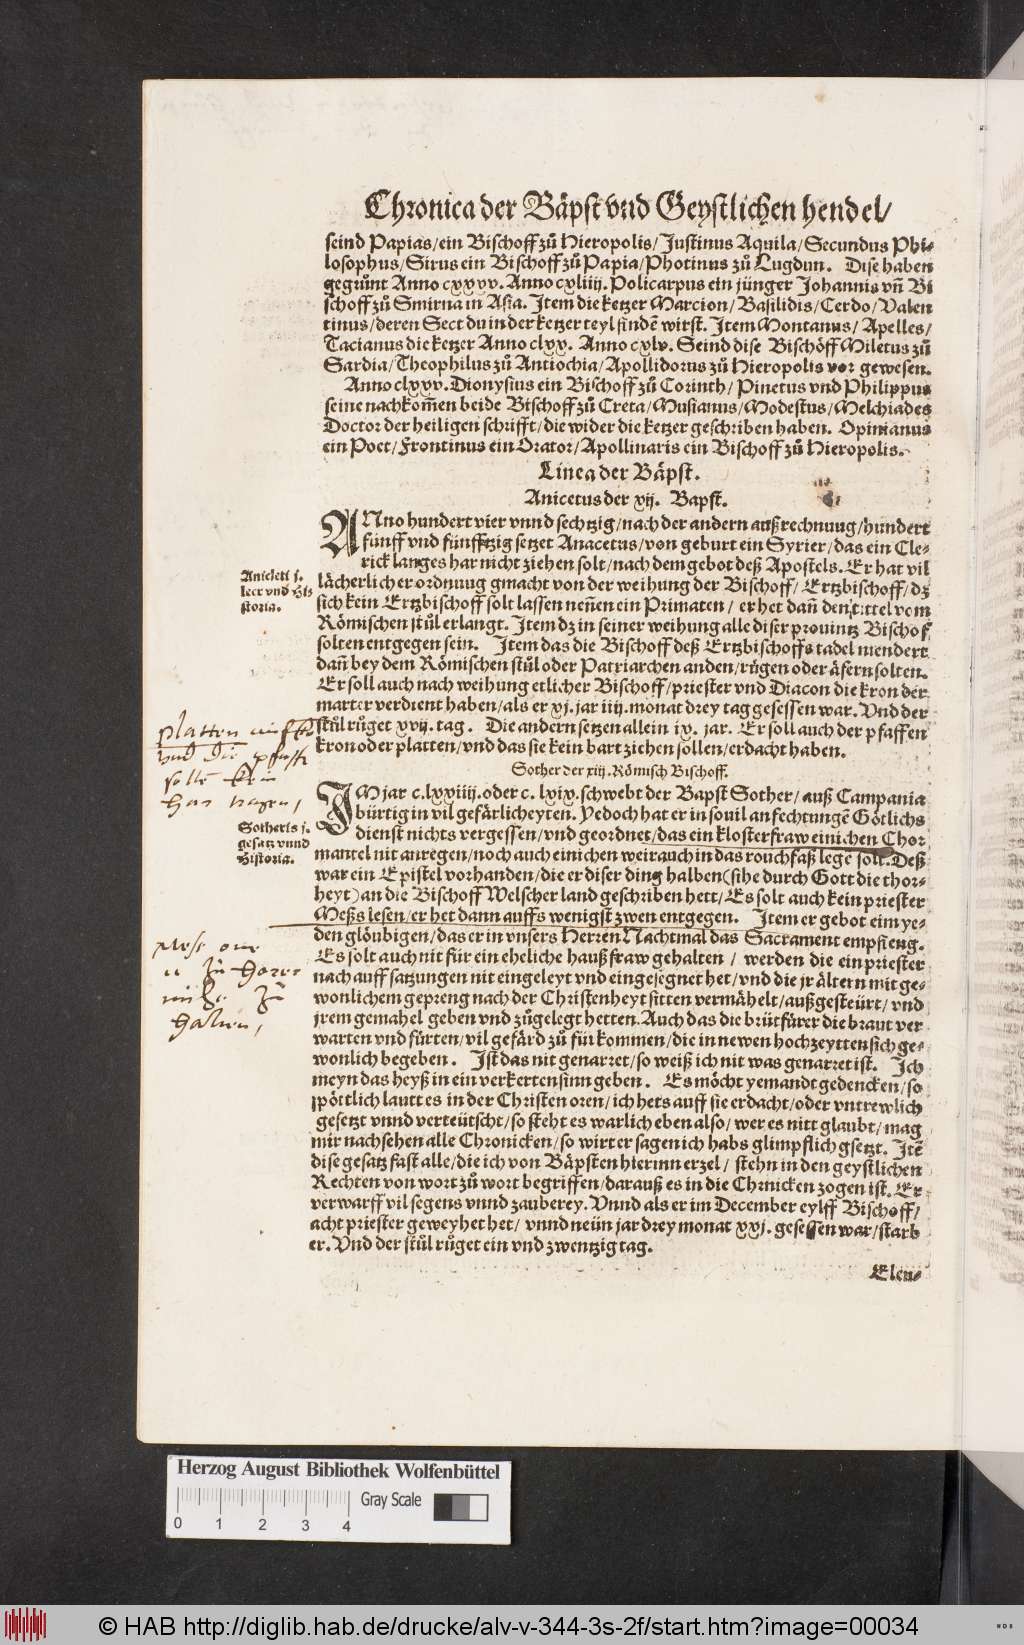 Chronica der Bäpst vnd Geystlichen hendel/
seind Papias/ein Bischoff zů Hieropolis/Justinus Aquila/Secundus Phi-
losophus/Sirus ein Bischoff zů Papia/Photinus zů Lugdun. Dise haben
gegrünt Anno cxxxv. Anno cxliiij. Policarpus ein jünger Johannis vñ Bi
schoff zů Smirna in Asia. Item die ketzer Marcion/Basilidis/Cerdo/Valen
tinus/deren Sect du in der ketzer teyl findẽ wirst. Item Montanus/Apelles/
Tacianus die ketzer Anno clxx. Anno cxlv. Seind dise Bischöff Miletus zů
Sardia/Theophilus zů Antiochia/Apollidorus zů Hieropolis vor gewesen.
Anno clxxv. Dionysius ein Bischoff zů Corinth/Pinetus vnd Philippus
seine nachkom̃en beide Bischoff zů Creta/Musianus/Modestus/Melchiades
Doctor der heiligen schrifft/die wider die ketzer geschriben haben. Opinianus
ein Poet/Frontinus ein Orator/Apollinaris ein Bischoff zů Hieropolis.
Linea der Bäpst.
Anicetus der xij. Bapst.
ANno hundert vier vnnd sechtzig/nach der andern außrechnung/hundert
fünff vnd fünfftzig setzet Anacetus/von geburt ein Syrier/das ein Cle-
rick langes har nicht ziehen solt/nach dem gebot deß Apostels. Er hat vil
lächerlich er ordnung gmacht von der weihung der Bischoff/Ertzbischoff/dz
sich kein Ertzbischoff solt lassen neñen ein Primaten/er het dañ den tittel vom
Römischen stůl erlangt. Item dz in seiner weihung alle diser prouintz Bischof
solten entgegen sein. Item das die Bischoff deß Ertzbischoffs tadel niendert
dañ bey dem Römischen stůl oder Patriarchen anden/rügen oder äfern solten.
Er soll auch nach weihung etlicher Bischoff/priester vnd Diacon die kron der
marter verdient haben/als er xj. jar iiij. monat drey tag gesessen war. Vnd der
stůl růget xvij. tag. Die andern setzen allein ix. jar. Er soll auch der pfaffen
kron oder platten/vnd das sie kein bart ziehen sollen/erdacht haben.
Anicleti j.
leer vnd His
storia.
platten
vnd die pfaffe
solle kein
har tragen,
Sother der xiij. Römisch Bischoff.
IM jar c.lxxiiij. oder c. lxix. schwebt der Bapst Sother/auß Campania
bürtig in vil gefärlicheyten. Yedoch hat er in souil anfechtungẽ Götlichs
dienst nichts vergessen/vnd geordnet/das ein klosterfraw einichen Chor
mantel nit anregen/noch auch einichen weirauch in das rouchfaß legẽ solt. Deß
war ein Epistel vorhanden/die er diser ding halben(sihe durch Gott die thor-
heyt) an die Bischoff Welscher land geschriben hett/Es solt auch kein priester
Meßs lesen/er het dann auffs wenigst zwen entgegen. Item er gebot eim ye-
den glöubigen/das er in vnsers Herren Nachtmal das Sacrament empfieng.
Es solt auch nit für ein eheliche haußfraw gehalten/werden die ein priester
nach auffsatzungen nit eingeleyt vnd eingesegnet het/vnd die jr ältern mit ge-
wonlichem gepreng nach der Christenheyt sitten vermähelt/außgesteürt/vnd
jrem gemahel geben vnd zůgelegt hetten. Auch das die brütfürer die braut ver
warten vnd fürten/vil gefärd zů fürkommen/die in newen hochzeytten sich ge-
wonlich begeben. Ist das nit genarret/so weiß ich nit was genarret ist. Ich
meyn das heyß in ein verkerten sinn geben. Es möcht yemandt gedencken/so
spöttlich lautt es in der Christen oren/ich hets auff sie erdacht/oder vntrewlich
gesetzt vnnd verteütscht/so steht es warlich eben also/wer es nitt glaubt/mag
mir nachsehen alle Chronicken/so wirt er sagen ich habs glimpflich gsetzt. Itẽ
dise gesatz fast alle/die ich von Bäpsten hierinn erzel/stehn in den geystlichen
Rechten von wort zů wort begriffen/darauß es in die Chrnicken zogen ist. Er
verwarff vil segens vnnd zauberey. Vnnd als er im December eylff Bischoff/
acht priester geweyhet het/vnnd neün jar drey monat xxj. gesessen war/starb
er. Vnd der stůl růget ein vnd zwentzig tag.
Sotheris j.
gesatz vnnd
Historia.
Mess one
zů horer
zů
Halten,
Eleu-
Herzog August Bibliothek Wolfenbüttel
Gray Scale
0 1 2 3 4
© HAB http://diglib.hab.de/drucke/alv-v-344-3s-2f/start.htm?image=00034